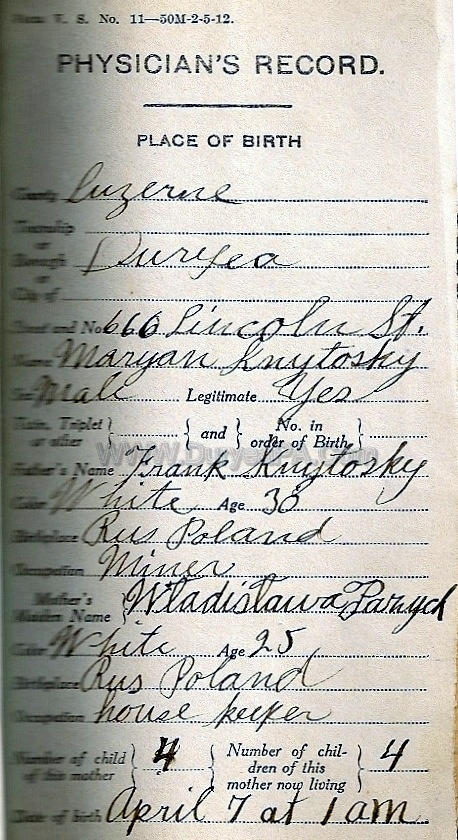 Form V. S. No. 11—50M-2-5-12.
PHYSICIAN'S RECORD.
PLACE OF BIRTH
County Luzerne
Township
or
Borough Duryea
or
City of
Street and No. 666 Lincoln St.
Name Maryan Knytosky
Sex Male Legitimate Yes
Twin, Triplet or other } { and } No. in order of Birth }
Father's Name Frank Knytosky
Color White Age 30
Birthplace Rus Poland
Occupation Miner
Mother's Maiden Name } Wladislawa Parych
Color White Age 25
Birthplace Rus Poland
Occupation house keeper
Number of child of this mother } 4 { Number of children of this mother now living } 4
Date of birth April 7 at 1 am